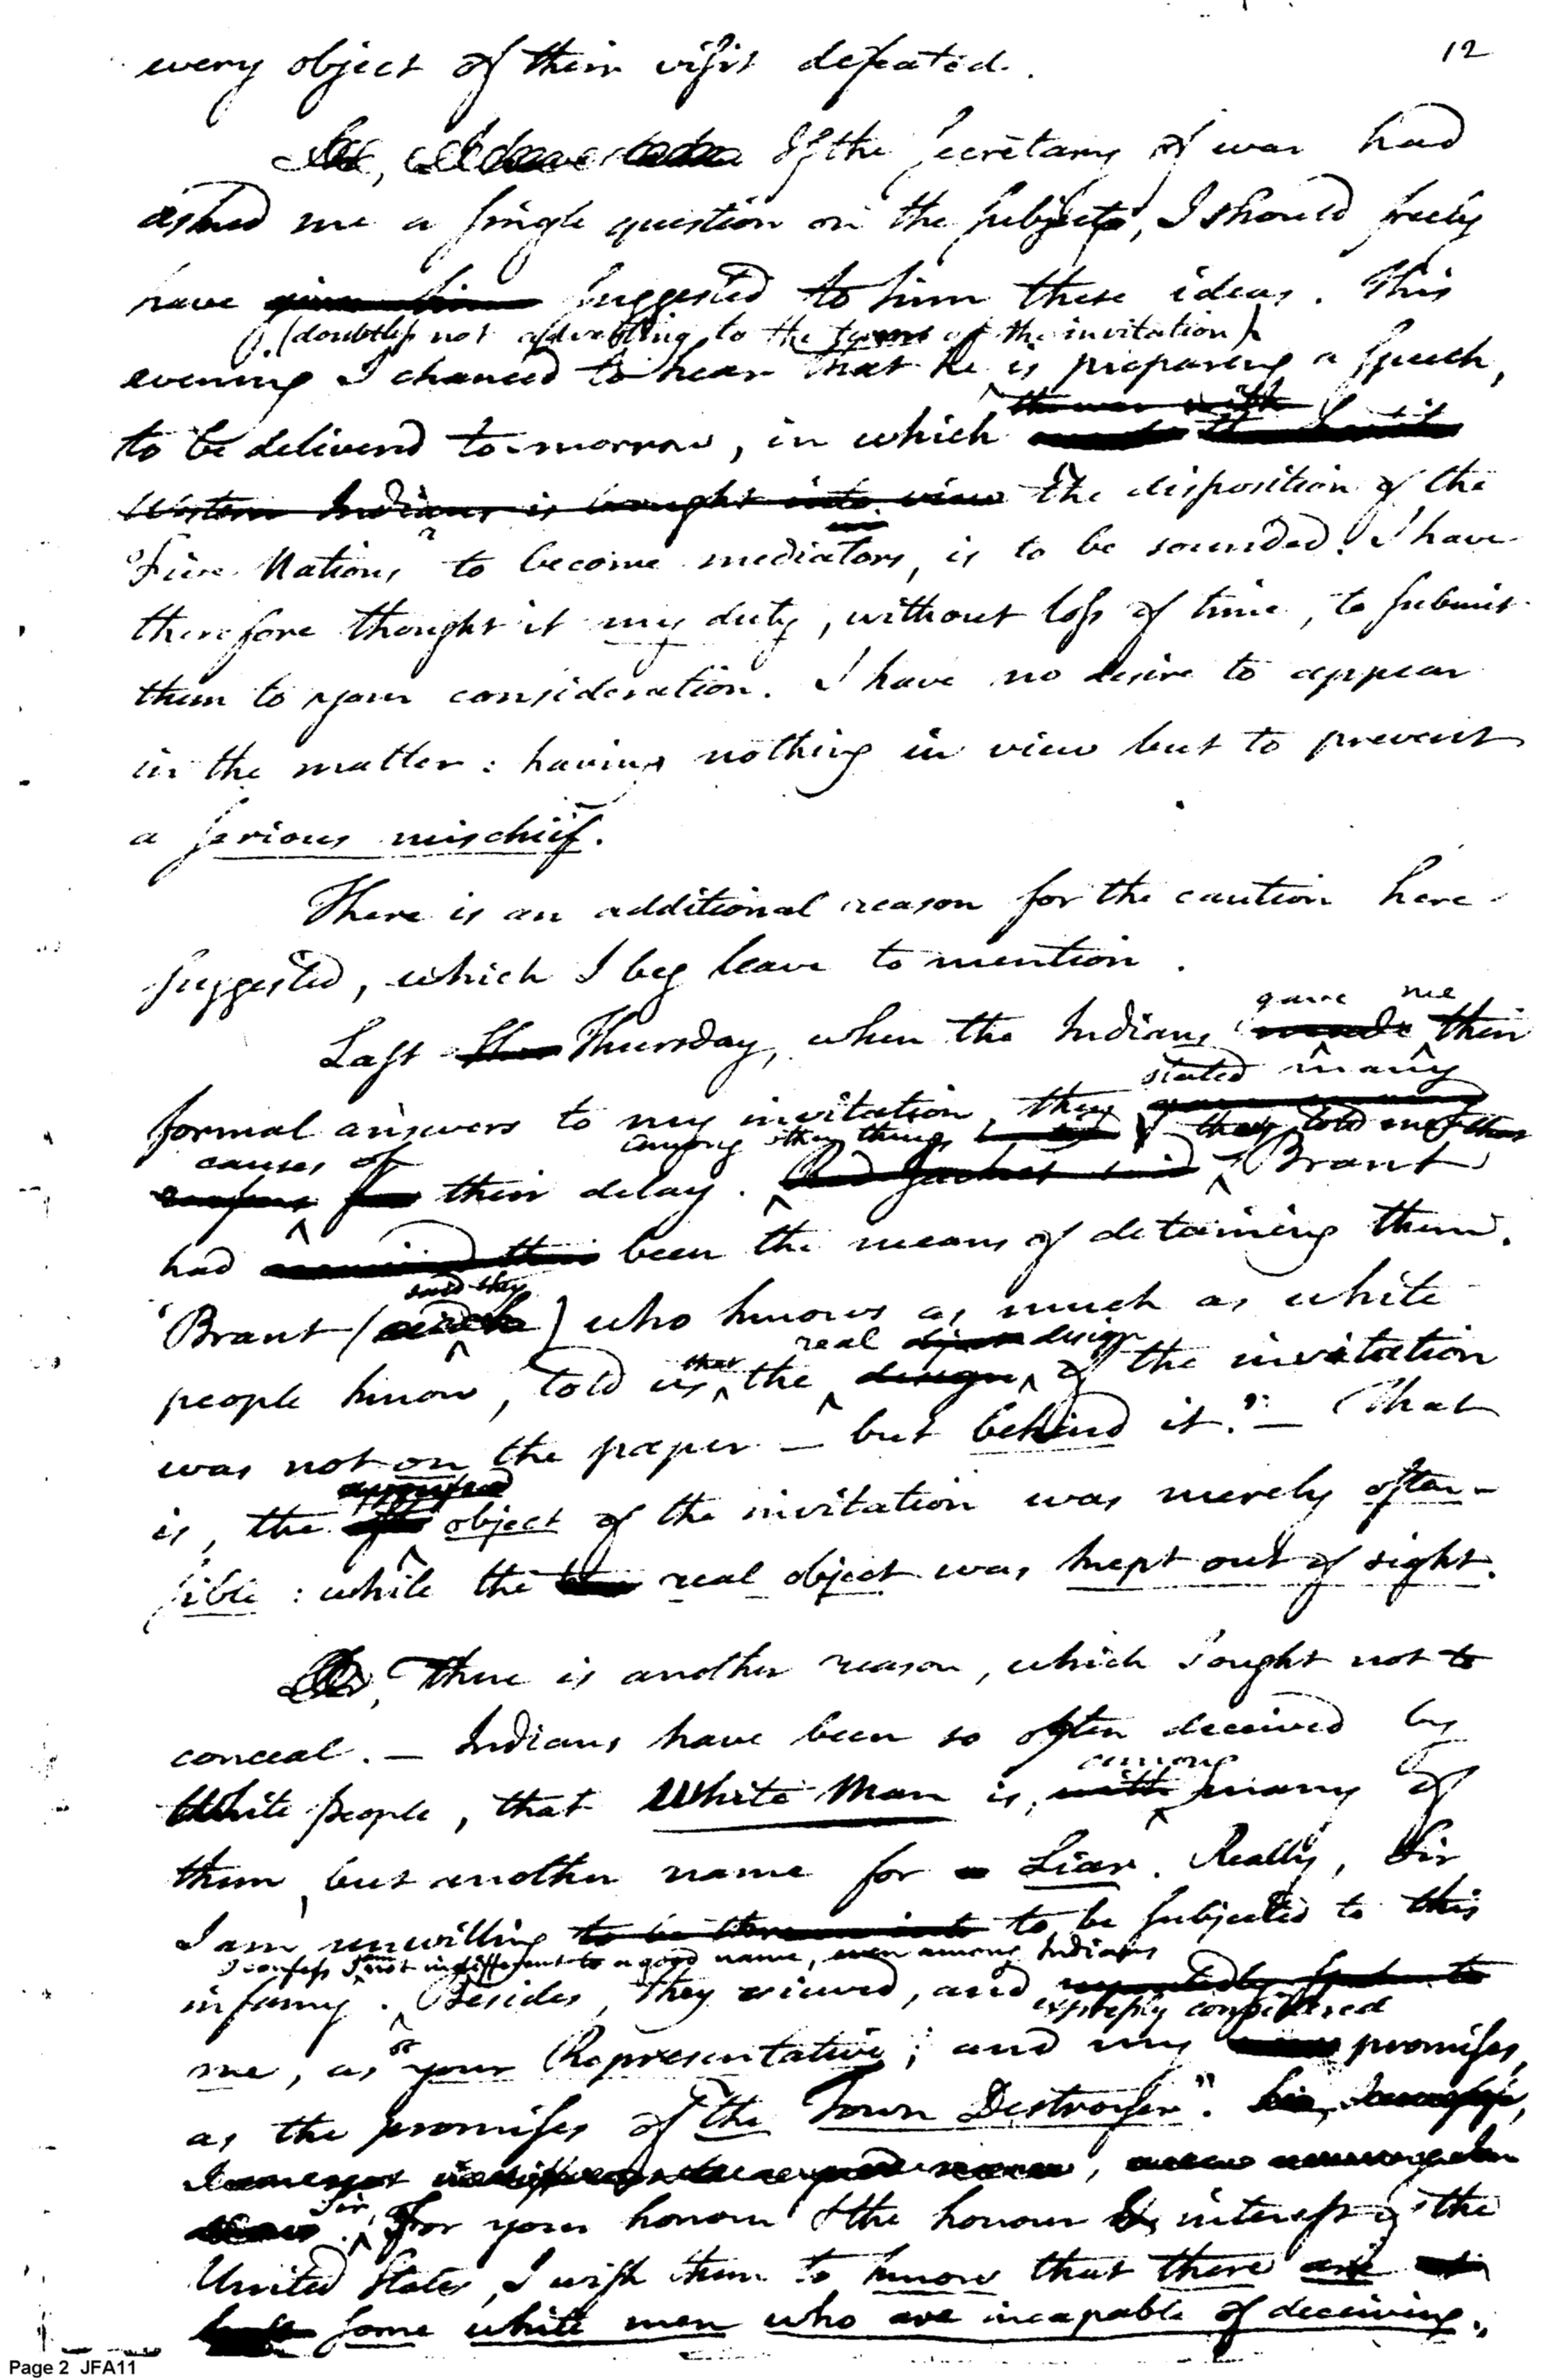 12
every object of their visit defeated.
If the Secretary of war had
asked me a single question on the subject, I should freely
have suggested to him these ideas. This
(doubtless not adverting to the terms of the invitation)
evening I chanced to hear that he is preparing a speech,
to be delivered to-morrow, in which
the war with
Western Indians is brought into view the disposition of the
Five Nations to become mediators, is to be sounded. I have
therefore thought it my duty, without loss of time, to submit
them to your consideration. I have no desire to appear
in the matter: having nothing in view but to prevent
a serious mischief.
There is an additional reason for the caution here
suggested, which I beg leave to mention.
gave me
Last Thursday, when the Indians made their
stated many
formal answers to my invitation, they
among other things they told me that
causes of
their delay. Red Jacket said Brant
had been the means of detaining them.
said they
'Brant ( ) who knows as much as white
real design
people know, told us that the design of the invitation
was not on the paper — but behind it." — That
avowed
is, the object of the invitation was merely osten-
sible: while the real object was kept out of sight.
There is another reason, which I ought not to
conceal. — Indians have been so often deceived by
among
White people, that White Man is, with many of
them, but another name for Liar. Really, Sir,
I am unwilling to be subjected to this
I confess I am not indifferent to a good name, even among Indians
infamy. Besides, they viewed, and
expressly considered
me, as your Representative; and my promises,
as the promises of "the Town Destroyer".
Sir,
For your honour & the honour & interest of the
United States, I wish them to know that there are
some white men who are incapable of deceiving.
Page 2 JFA11